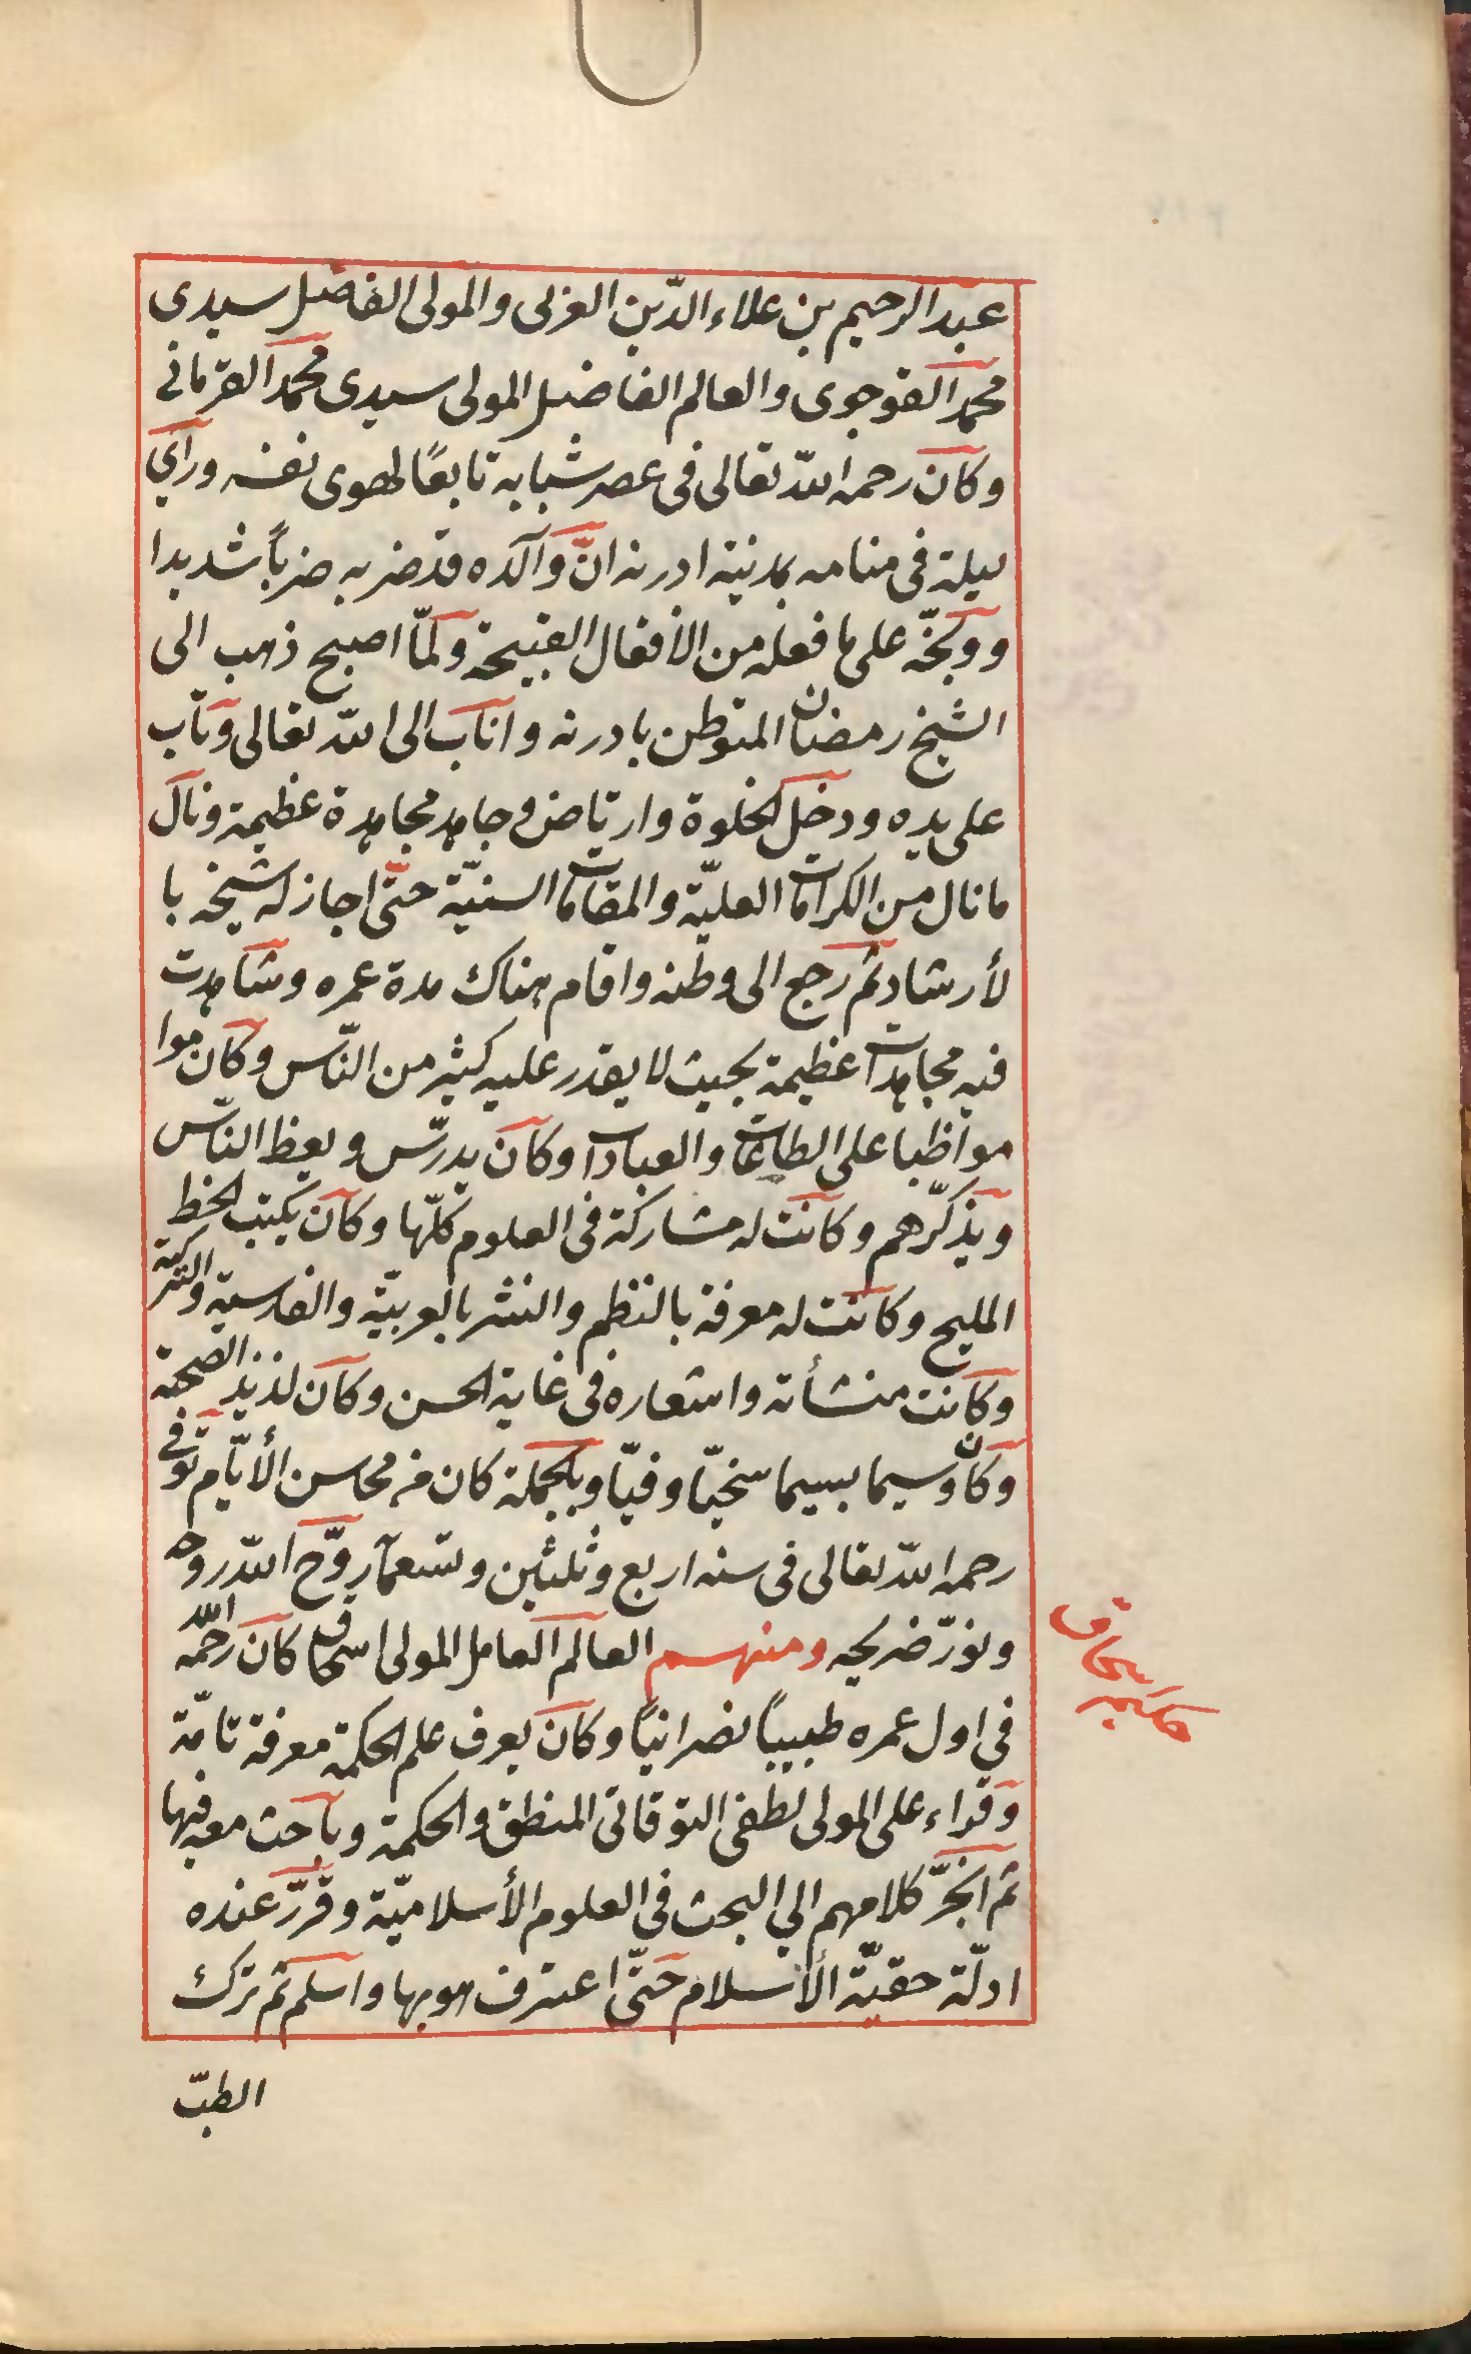 عبد الرحيم بن علاء الدّين العربى والمولى الفاضل سيدى
محمد القوجوى والعالم الفاضل المولى سيدى محمد القرمانى
وكان رحمه الله تعالى فى عصر شبابه تابعًا لهوى نفسه ورأي
ليلة فى منامه بمدينة ادرنه انّ والده قد ضربه ضربًا شديدا
ووبّخه على ما فعله من الأفعال القبيحة ولمّا اصبح ذهب الى
الشيخ رمضان المتوطن بادرنه واناب الى الله تعالى وتاب
على يده ودخل الخلوة وارتاض وجاهد مجاهدة عظيمة ونال
ما نال من الكرامات العليّة والمقامات السنيّة حتّى اجاز له شيخه با
لأرشاد ثم رجع الى وطنه واقام هناك مدة عمره وشاهدت
فيه مجاهدات عظيمة بحيث لا يقدر عليه كثير من النّاس وكان موا
مواظبا على الطاعات والعبادات وكان يدرّس ويعظ النّاس
ويذكّرهم وكانت له مشاركة فى العلوم كلّها وكان يكتب الخط
المليح وكانت له معرفة بالنظم والنثر بالعربيّة والفارسية والتركية
وكانت منشأته واشعاره فى غاية الحسن وكان لذيذ الصحبة
وكان وسيما بسيما سخيّا وفيّا وبالجملة كان من محاسن الأيّام توفى
رحمه الله تعالى فى سنه اربع وثلثين وتسعمآ روّح الله روحه
ونوّر ضريحه ومنهم العالم العامل المولى اسحاق كان رحمه الله
في اول عمره طبيبًا نصرانيًا وكان يعرف علم الحكمة معرفة تامّة
وقراء على المولى لطفى التوقاتى المنطق والحكمة وباحث معه فيها
ثم انجرّ كلامهم الي البحث في العلوم الأسلاميّة وقرّر عنده
ادلّة حقيّة الأسلام حتّى اعترف هو بها واسلم ثم ترك
الطبّ
حكيم اسحاق